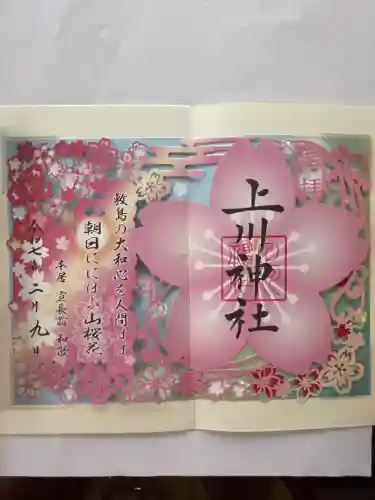 奉拝
上川神社
敷島の大和心を人問はば
朝日ににほふ山桜花
本居宣長翁 和歌
令和七年二月九日